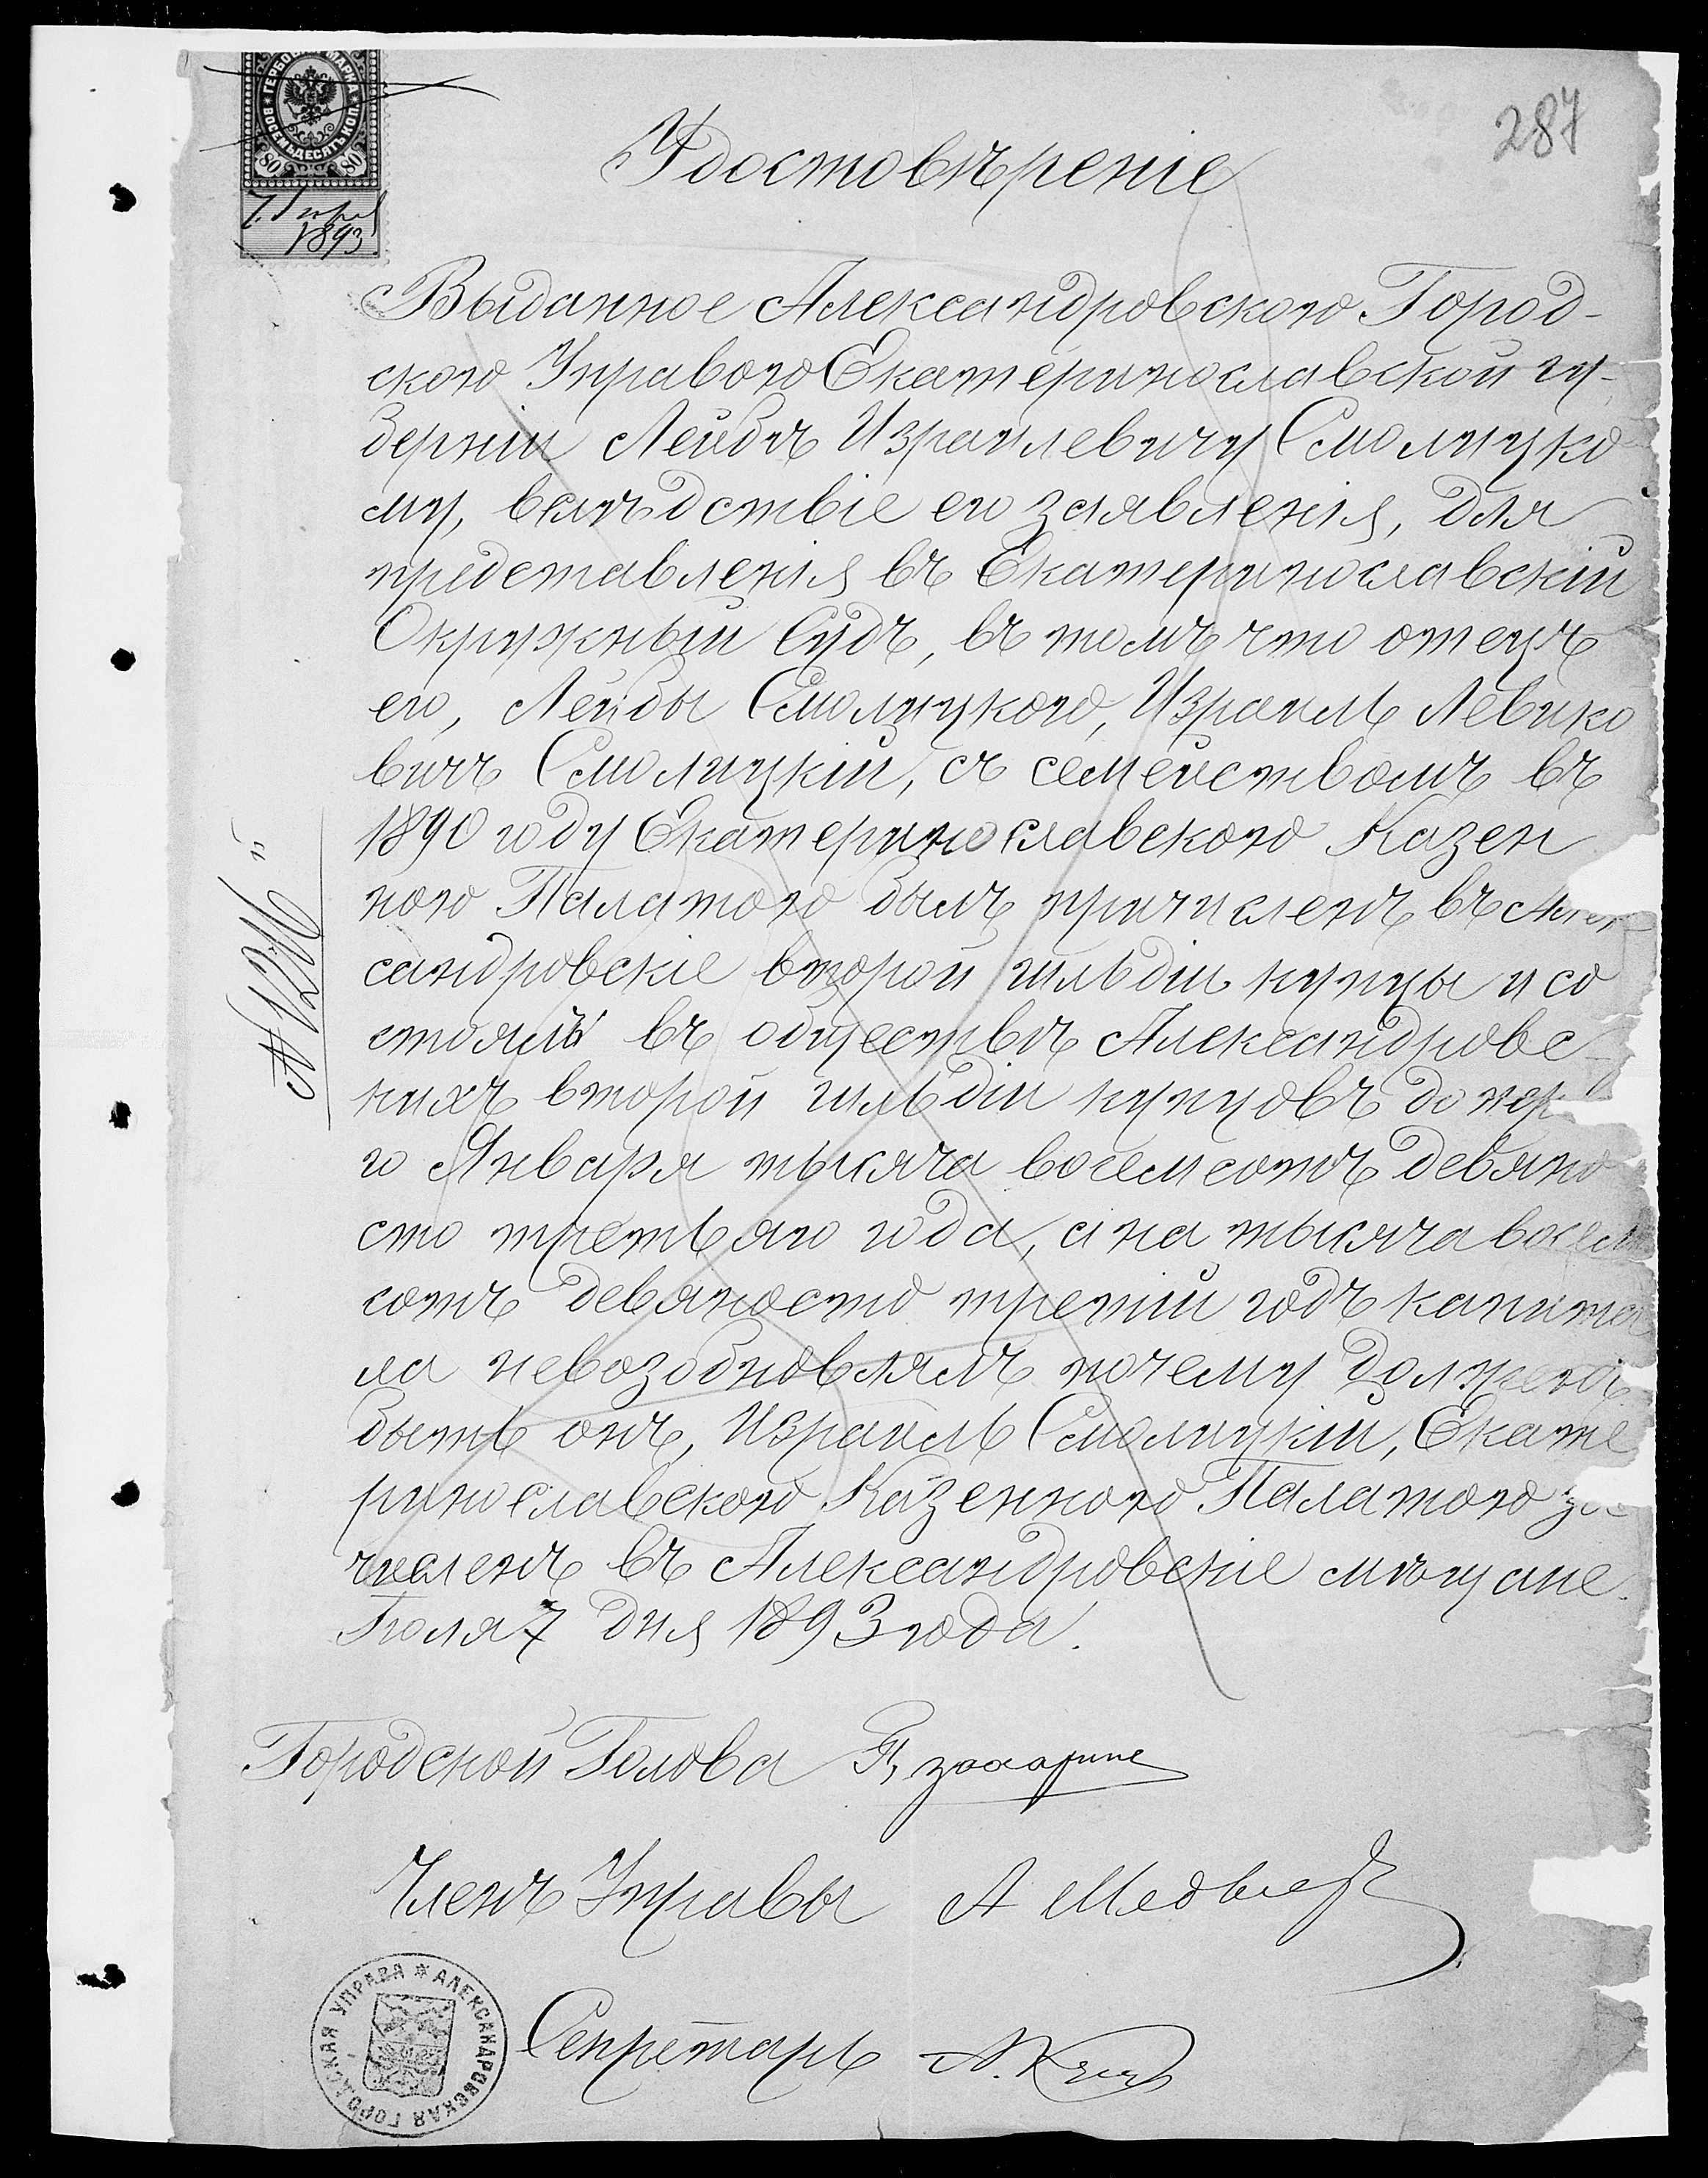 287
ГЕРБОВАЯ МАРКА
ВОСЕМЬДЕСЯТЬ КОП.
80 80
1893
Удостовѣреніе
Выданное Александровскою Город-
скою Управою Екатеринославской гу-
берніи Лейбѣ Израилевичу Смолицко
му, вслѣдствіе его заявленія, для
представленія въ Екатеринославскій
Окружный Судъ, въ томъ что отецъ
его, Лейбы Смолицкого, Израиль Левико
вичъ Смолицкій, съ семействомъ въ
1890 году Екатеринославскою Казен
ною Палатою былъ причисленъ въ Алек
сандровскіе второй гильдіи купцы и со
стоялъ въ обществѣ Александровс-
кихъ второй гильдіи купцовъ до пер
го Января тысяча восемсотъ девяно
сто третьяго года, а на тысяча восем
сотъ девяносто третій годъ капита
ла невозобновлялъ почему долженъ
быть онъ, Израиль Смолицкій, Екате
ринославскою Казенною Палатою за
численъ въ Александровскіе мѣщане.
Іюля 7 дня 1893 года.
№ 1216
Городской Голова
Членъ Управы А Медведь
Секретарь
АЛЕКСАНДРОВСКАЯ ГОРОДСКАЯ УПРАВА